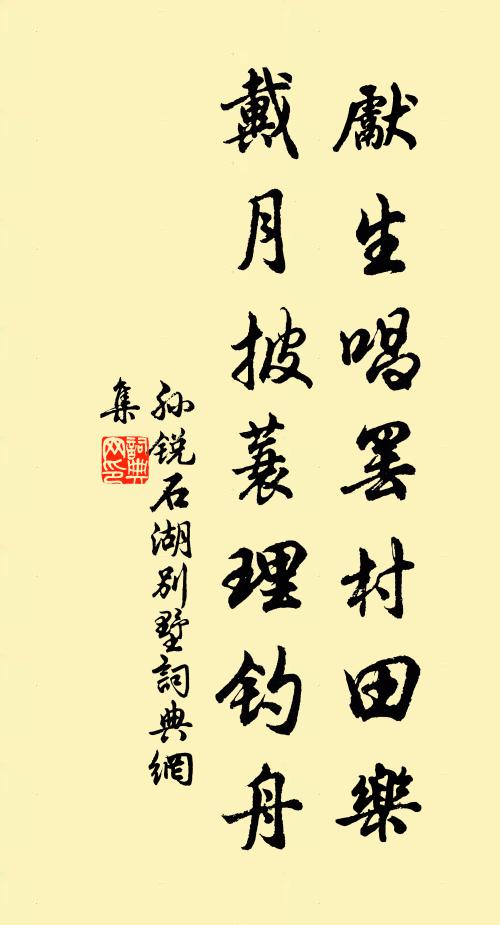 獻生唱罢村田樂
戴月披蓑理釣舟
孙锐石湖别墅詞典網
集
詞典网印